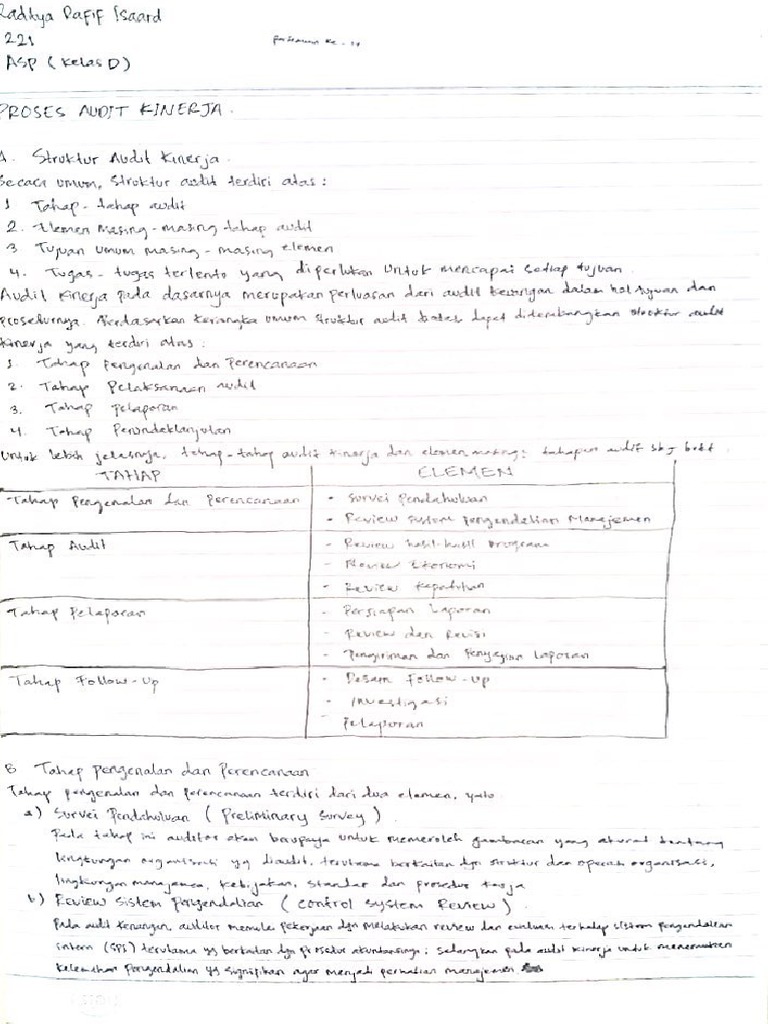 Raditya Rafif Isaard
221
ASP (Kelas D)
Pertemuan Ke-
PROSES AUDIT KINERJA.
A. Struktur Audit Kinerja.
Secara umum, struktur audit terdiri atas:
1 Tahap-tahap audit
2. Elemen masing-masing tahap audit
3 Tujuan umum masing-masing elemen
4. Tugas-tugas tertentu yang diperlukan untuk mencapai setiap tujuan.
Audit kinerja pada dasarnya merupakan perluasan dari audit keuangan dalam hal tujuan dan
prosedurnya. Berdasarkan kerangka umum struktur audit diatas dapat dikembangkan struktur audit
kinerja yang terdiri atas:
1. Tahap Pengenalan dan Perencanaan
2. Tahap Pelaksanaan audit
3. Tahap Pelaporan
4. Tahap Penindaklanjutan
Untuk lebih jelasnya, tahap-tahap audit kinerja dan elemen masing2 tahapan audit sbg bekt.
TAHAP ELEMEN
Tahap Pengenalan dan Perencanaan - Survei Pendahuluan
- Review sistem pengendalian Manajemen
Tahap Audit - Review hasil-hasil program
- Review Ekonomi
- Review Kepatuhan
Tahap Pelaporan - Persiapan Laporan
- Review dan Revisi
- Pengiriman dan Penyajian Laporan
Tahap Follow-Up - Desain Follow-up
- Investigasi
- Pelaporan
B Tahap pengenalan dan Perencanaan
Tahap pengenalan dan perencanaan terdiri dari dua elemen, yaitu
a) Survei Pendahuluan (Preliminary Survey)
Pada tahap ini auditor akan berupaya untuk memeroleh gambaran yang akurat tentang
lingkungan organisasi yg diaudit, terutama berkaitan dgn struktur dan operasi organisasi,
lingkungan manajemen, kebijakan, standar dan prosedur kerja
b) Review Sistem Pengendalian (Control System Review).
Pada audit keuangan, auditor memulai pekerjaan dgn melakukan review dan evaluasi terhadap sistem pengendalian
intern (SPI) terutama yg berkaitan dgn prosedur akuntansinya; sedangkan pada audit kinerja untuk menemukan
kelemahan pengendalian yg signifikan agar menjadi perhatian manajemen